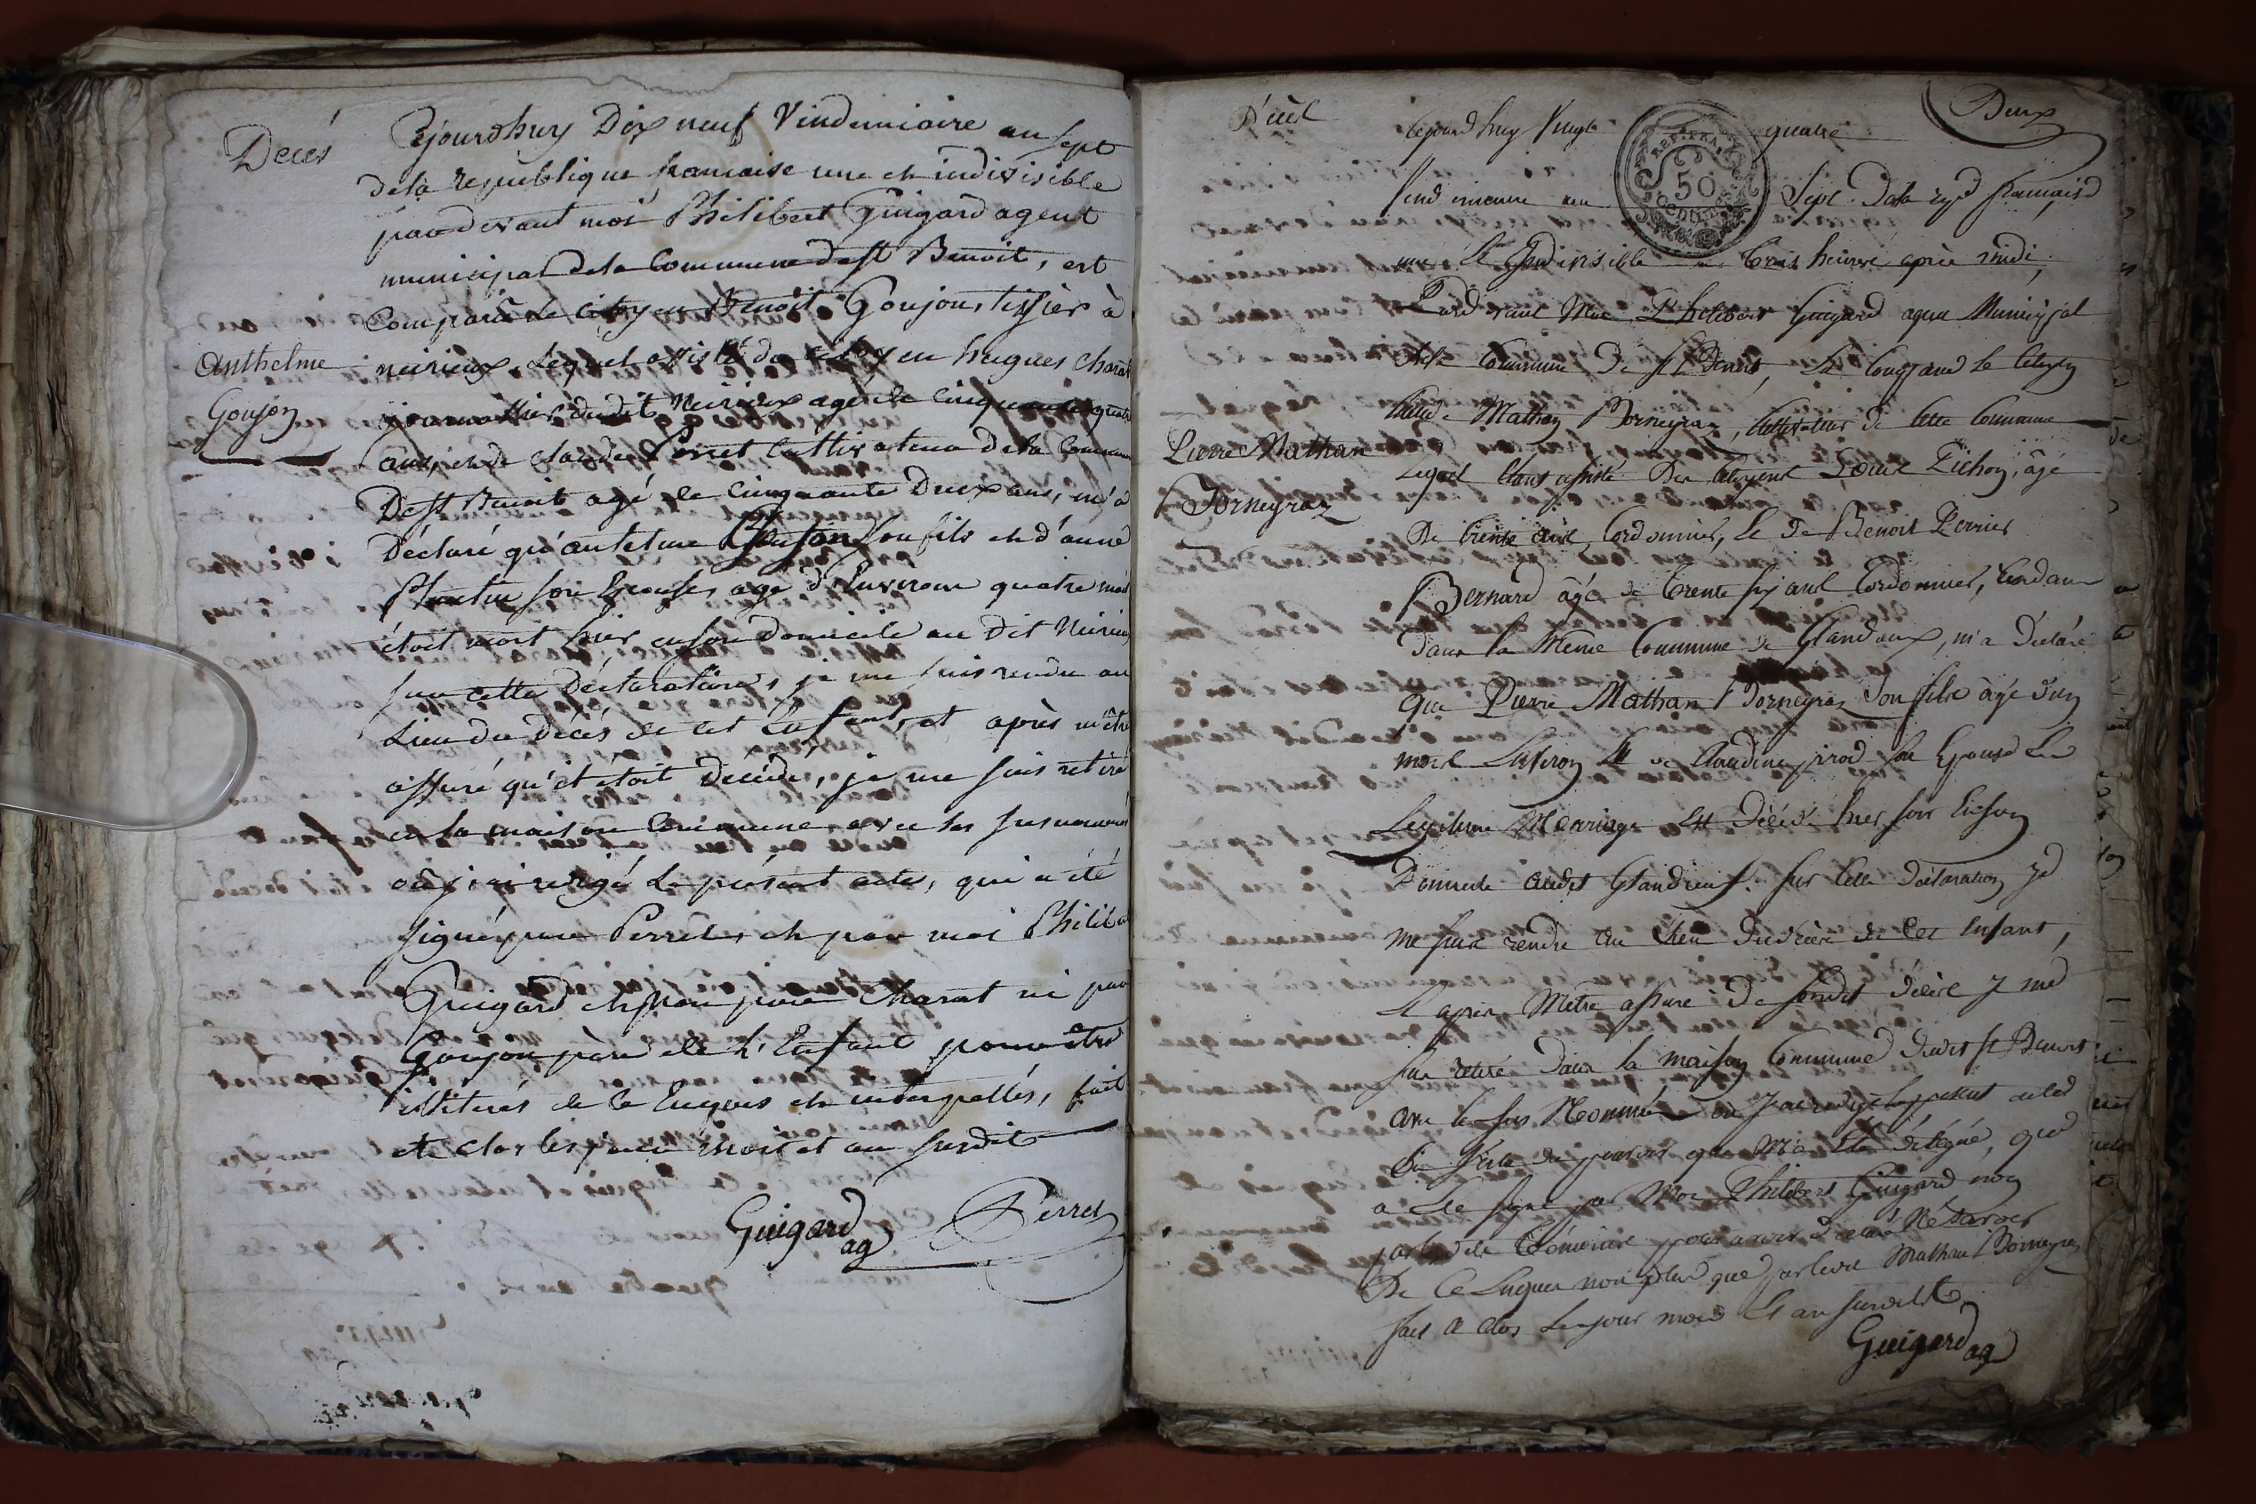 Decés
Cejourdhuy Dix neuf Vindemiaire an sept
dela republique francaise une et indivisible
pardevant moi Philibert Guigard agent
municipal dela Commune de st Benoit, est
Comparu le citoyen Benoit Goujon, tissier à
Anthelme
Goujon
neirieux, Lequel assisté du citoyen hugues Charat
dudit Neirieux agé de Cinquante quatre
ans, et de claude Perret Cultivateur dela Commune
De st Benoit agé de Cinquante Deux ans, m'a
Déclaré qu'antelme Goujon son fils et d'anne
son Epouse, agé d'Environ quatre mois
étoit mort hier en son domicile au Dit Neirieux
sur cette Déclaration, je me suis rendu au
Lieu du Décés de cet Enfant, et après m'être
assuré qu'il etoit Decédé, je me suis retiré
en la maison Commune avec les susnommés
où j'ai rédigé le présent acte, qui a été
signé par Perret, et par moi Philibert
Guigard et non par Charat ni par
Goujon pere de l'Enfant pour être
illiterés de ce Enquis et interpellés, fait
et clos les jour mois et an susdit
Guigard
ag
Perret
Deux
Décès
Cejourd'huy Vingt quatre
REP. FRA.
50
Centimes
Vend emiaire an Sept. Dela rep française
une et Indivisible Trois heures après midi,
Pardevant Moi Philibert Guigard agent Municipal
Dela Commune De St Benoit, Est Comparu le Citoyen
Pierre Mathan
Borneyraz
Claude Mathan Borneyraz, Cultivateur de Cette Commune
Lequel Etant assisté Des Citoyens Louis Pichon, âgé
De trente ans Cordonnier, Et De Benoit Perrier
Bernard âgé de trente six ans Cordonnier, Résidant
Dans la Même Commune de Glandieux, m'a Déclaré
Que Pierre Mathan Borneyraz Son fils âgé d'un
mois Environ Et de Claudine Son Epouse En
Legitime Mariage Est Décédé hier soir En Son
Domicile audit Glandieux. Sur Cette déclaration je
me suis rendu au Lieu du décès de Cet Enfant,
Et après M'être assuré de Sondit Décès je me
suis retiré dans la maison Commune dudit St Benoit
avec les sus Nommés ou J'ai redigé le présent acte
En vertu des pouvoirs qui M'a Eté délégué, qui
a Eté signé par Moi Philibert Guigard non
par les dits témoins pour avoir déclaré Ne savoir
De Ce Enquis non plus que par le dit Mathan Borneyraz
fait et Clos Le jour mois Et an susdit
Guigard ag